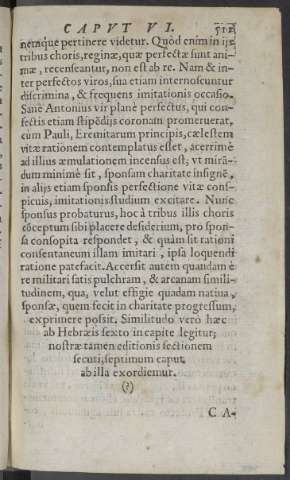 CAPVT VI.
nemque pertinere videtur. Quòd enim in ijs
tribus choris, reginæ, quæ perfectæ sunt ani-
mæ, recenseantur, non est ab re. Nam & in-
ter perfectos viros, sua etiam internoscuntur
discrimina, & frequens imitationis occasio.
Sanè Antonius vir planè perfectus, qui con-
fectis etiam stipẽdijs coronam promeruerat,
cùm Pauli, Eremitarum principis, cælestem
vitæ rationem contemplatus esset, acerrimè
ad illius æmulationem incensus est; vt mirã-
dum minimè sit, sponsam charitate insignẽ,
in alijs etiam sponsis perfectione vitæ cons-
picuis, imitationis studium excitare. Nunc
sponsus probaturus, hoc à tribus illis choris
cõceptum sibi placere desiderium, pro spon-
sa consopita respondet, & quàm sit rationi
consentaneum illam imitari, ipsa loquendi
ratione patefacit. Accersit autem quandam è
re militari satis pulchram, & arcanam simili-
tudinem, qua, velut effigie quadam natiua,
sponsæ, quem fecit in charitate progressum,
exprimere possit. Similitudo verò hæc
ab Hebræis sexto in capite legitur;
nostræ tamen editionis sectionem
secuti, septimum caput
ab illa exordiemur.
(?)
CA-